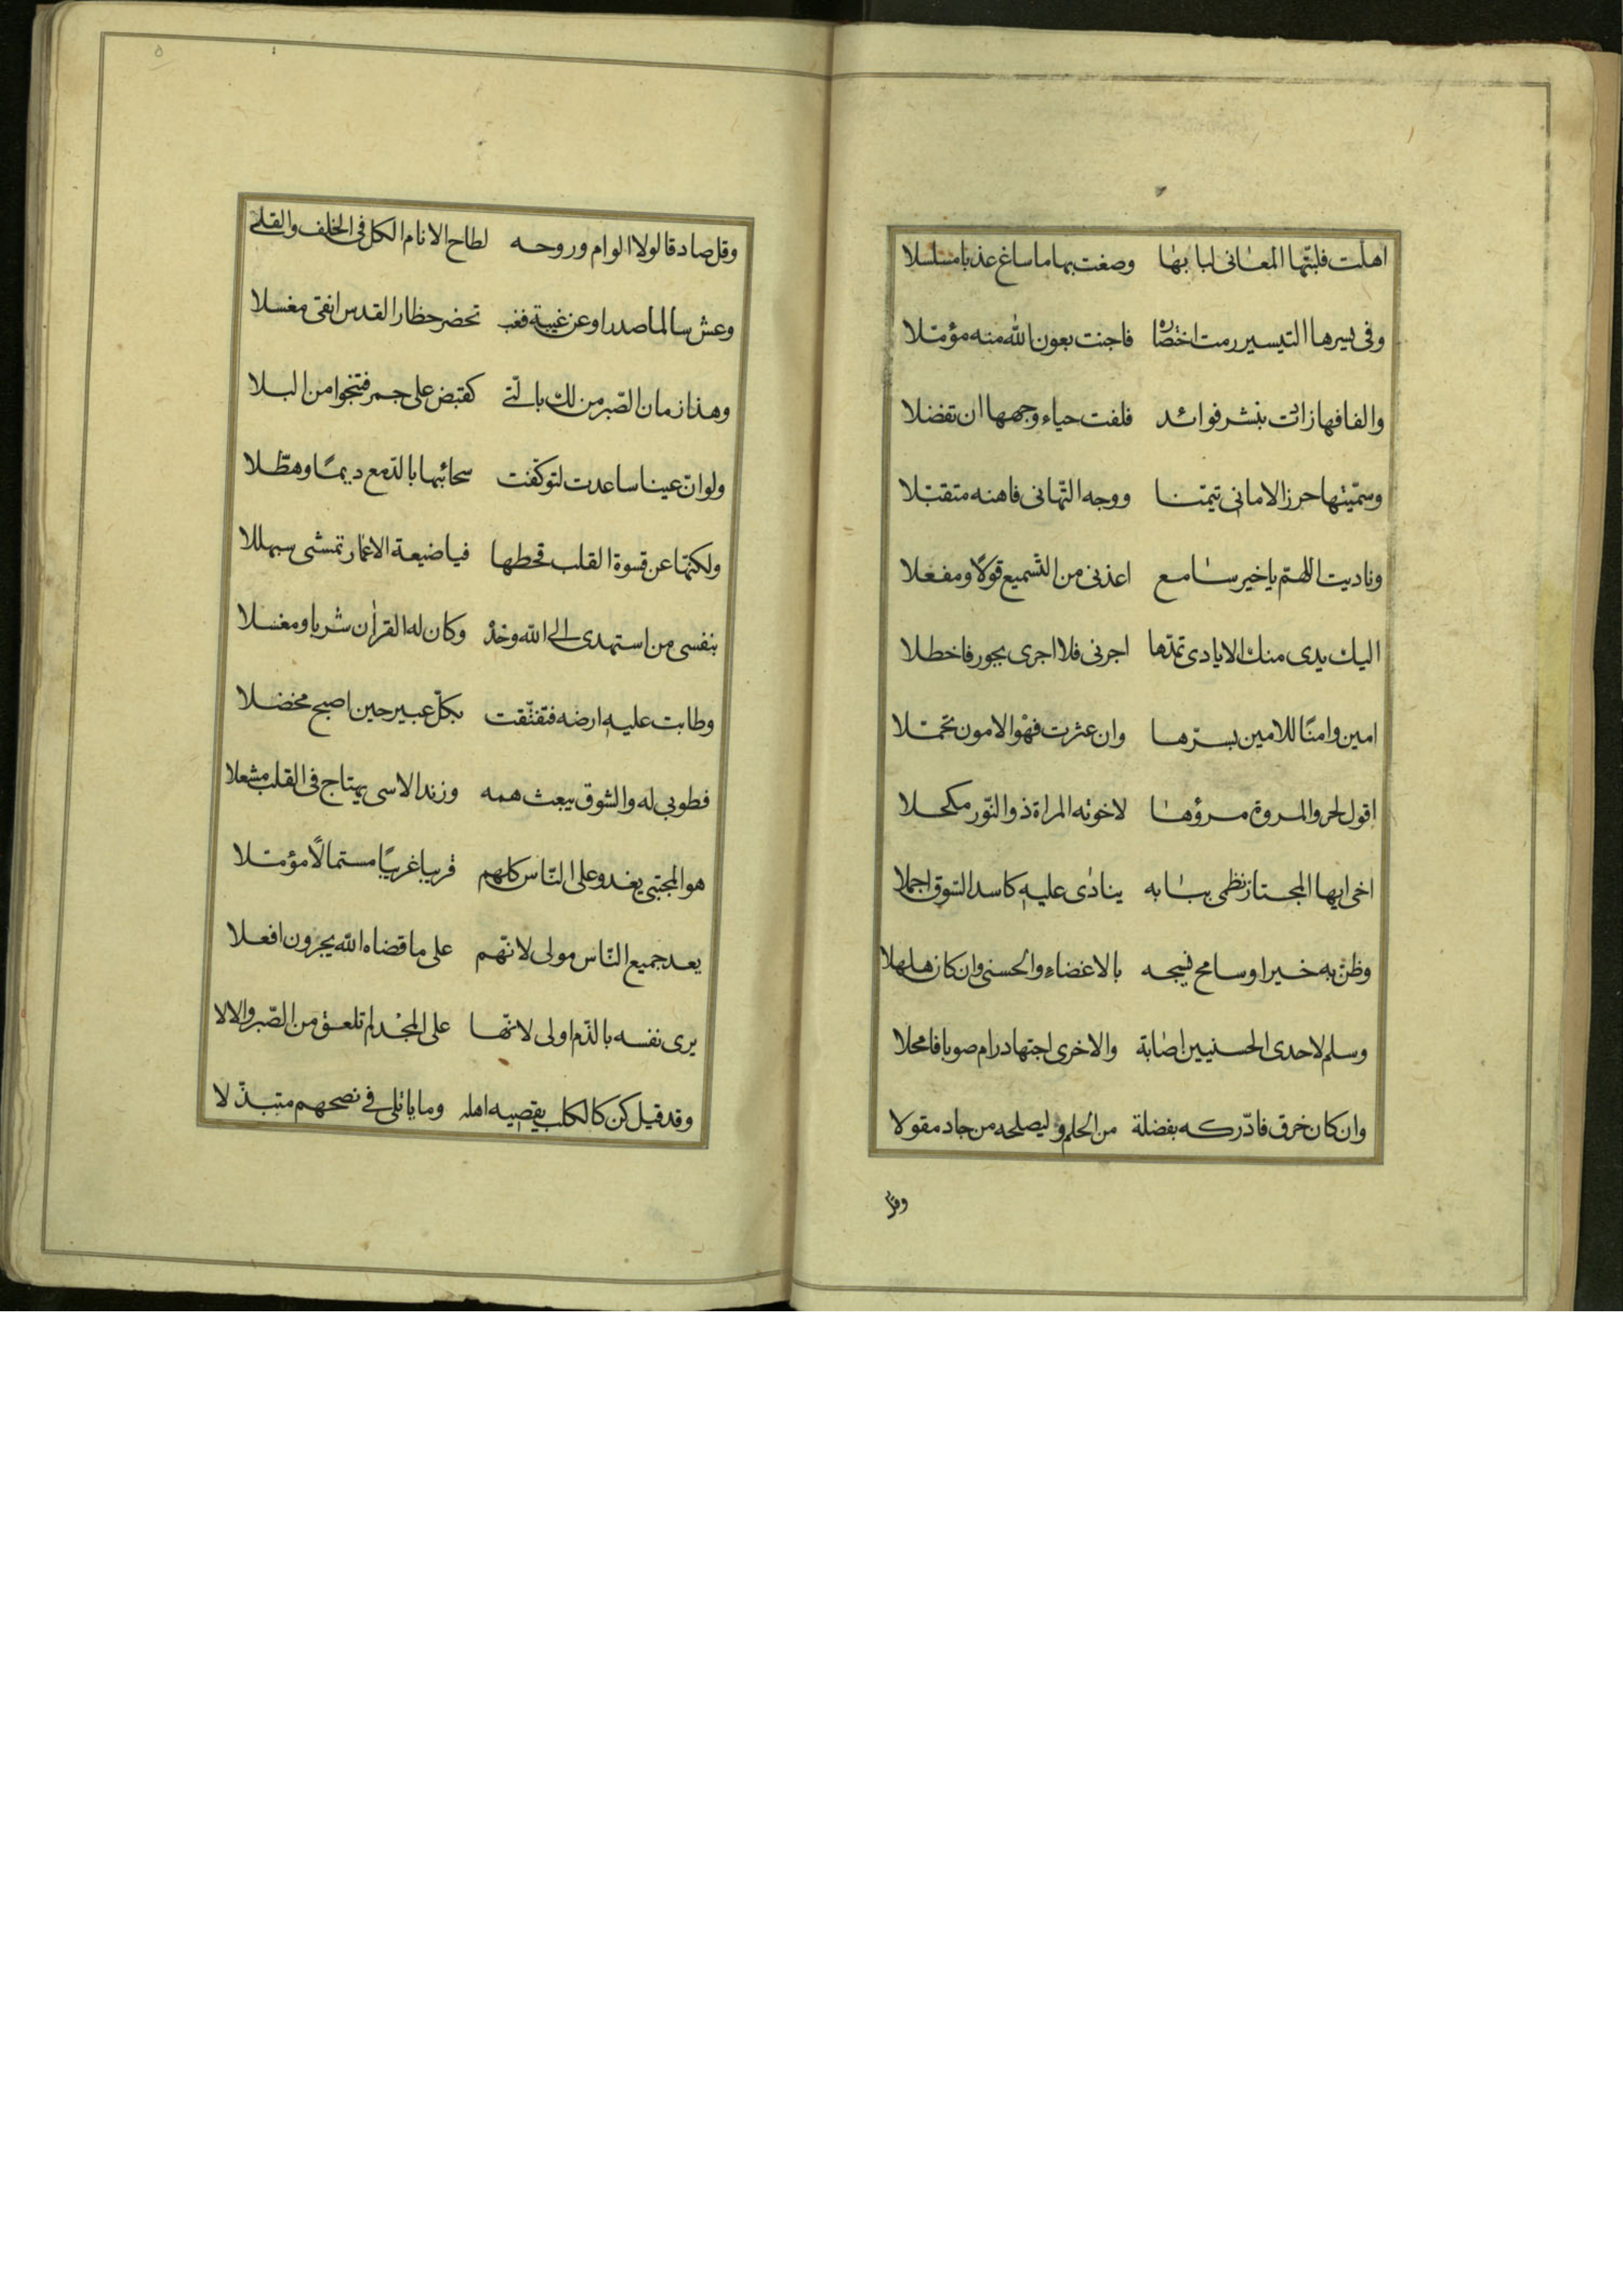 اهلّت فلبتها المعانى لبابها وصغت بها ما ساغ عذبا مسلسلا
وفى يسرها التيسير رمت اختصاره فاجنت بعون الله منه مؤمّلا
والفافها زادت بنشر فوائد فلفت حياء وجهها ان تفضلا
وسمّيتها حرز الامانى تيمّنا ووجه التّهانى فاهنه متقبّلا
وناديت اللّهمّ يا خير سامع اعذنى من التّسميع قولًا ومفعلا
اليك يدى منك الايادى تمدّها اجرنى فلا اجرى بجور فاخطلا
امين وامنًا للامين بسرّها وان عثرت فهْو الامون تحمّلا
اقول لحر والمروة مرؤها لاخوته المراة ذو النّور مكحلا
اخى ايها المجتاز نظمى ببابه ينادى عليه كاسد السّوق اجملا
وظنّ به خيرا وسامح نسجه بالاغضاء والحسنى وان كان هلهلا
وسلم لاحدى الحسنيين اصابة والاخرى اجتهاد رام صوبا فامحلا
وان كان خرق فادّركه بفضلة من الحلم وليصلحه من جاد مقولا
وقل
٥
وقل صادقا لولا الوام وروحه لطاح الانام الكل فى الخلف والقلى
وعش سالما صدرا وعن غيبة فغب تحضر حظار القدس انقى مغسلا
وهذا زمان الصّبر من لك بالّتى كقبض على جمر فتنجوا من البلا
ولو انّ عينا ساعدت لتوكّفت سحائبها بالدّمع ديمًا وهطّلا
ولكنّها عن قسوة القلب قحطها فيا ضيعة الاعمار تمشى سبهللا
بنفسى من استهدى الى الله وحْدَه وكان له القراٰن شربا ومغسلا
وطابت عليه ارضه فتفتّقت بكلّ عبير حين اصبح مخضلا
فطوبى له والشوق يبعث همه وزند الاسى يهتاج فى القلب مشعلا
هو المجتبى يغدو على النّاس كلهم قريبا غريبًا مستمالًا مؤمّلا
يعد جميع النّاس مولى لانّهم على ما قضاه الله يجرون افعلا
يرى نفسه بالذّم اولى لانّها على المجْد لم تلعق من الصّبر والالا
وقد قيل كن كالكلب يقصيه اهله وما ياتلى فى نصحهم متبذّلا